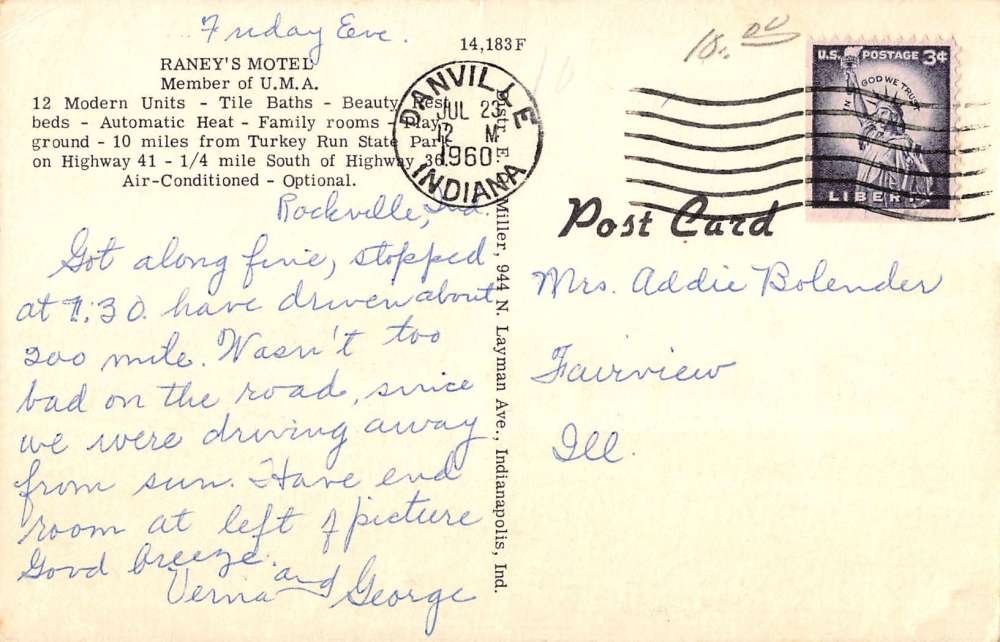 Friday Eve.
14,183F
RANEY'S MOTEL
Member of U.M.A.
12 Modern Units - Tile Baths - Beauty Rest
beds - Automatic Heat - Family rooms - Play
ground - 10 miles from Turkey Run State Park
on Highway 41 - 1/4 mile South of Highway 36.
Air-Conditioned - Optional.
Rockville, Ind.
Got along fine, stopped
at 7:30. have driven about
200 mile. Wasn't too
bad on the road, since
we were driving away
from sun. Have end
room at left of picture
Good breeze.
Verna and George
Distr. E. Miller, 944 N. Layman Ave., Indianapolis, Ind.
DANVILLE
JUL 23
12 M
1960
INDIANA
10.00
U.S. POSTAGE 3¢
IN GOD WE TRUST
LIBERTY
Post Card
Mrs. Addie Bolender
Fairview
Ill.